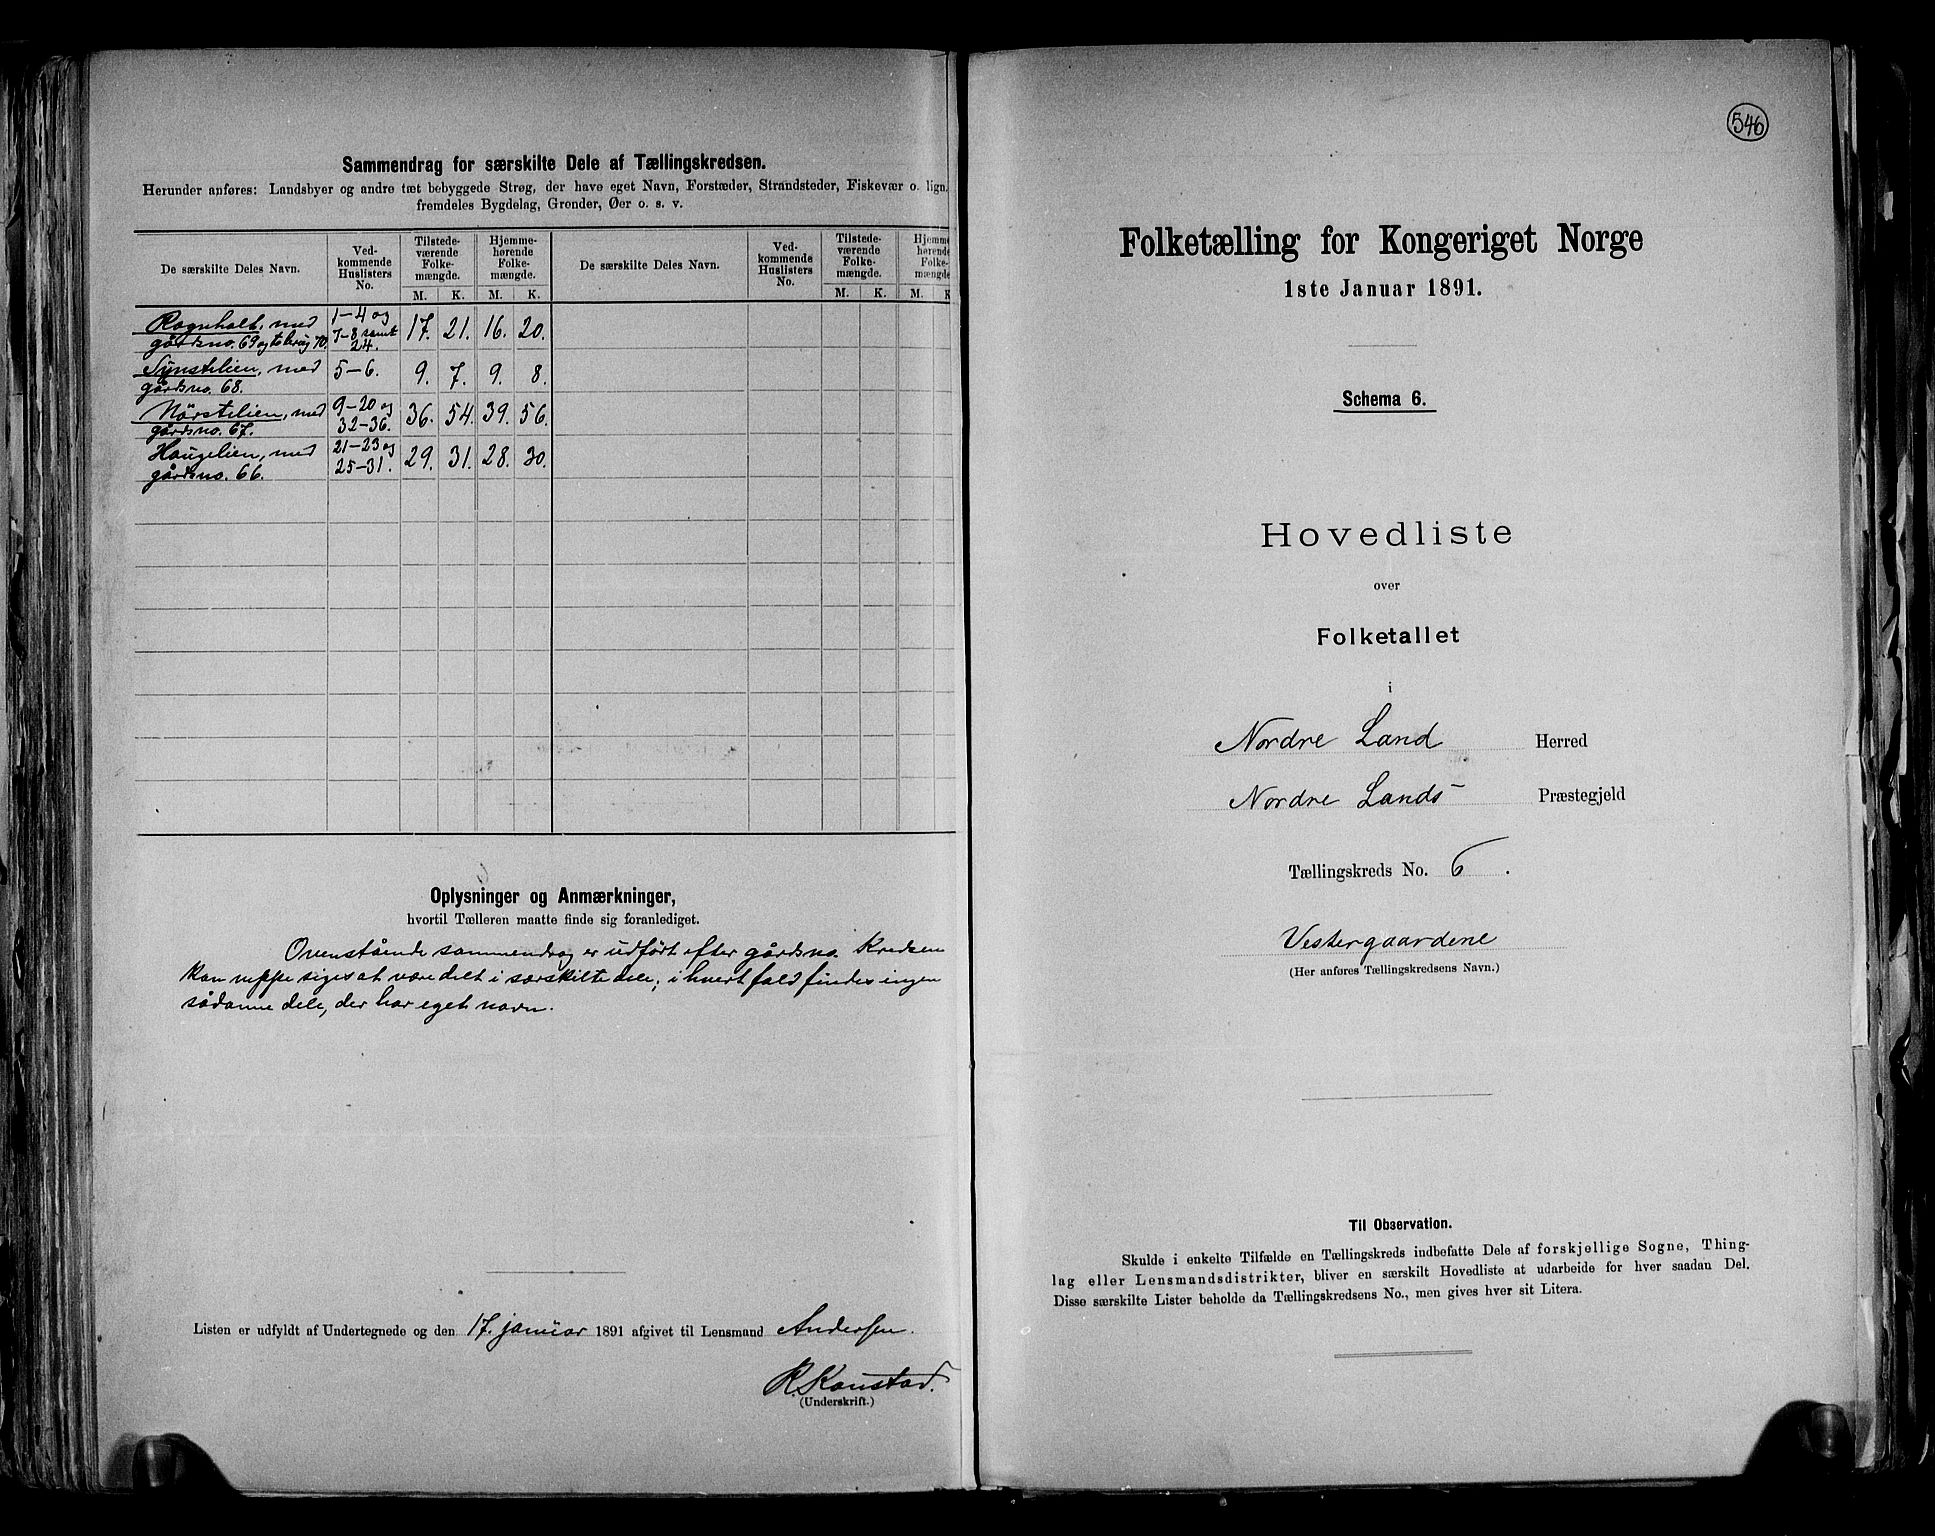 Sammendrag for særskilte Dele af Tællingskredsen.
Herunder anføres: Landsbyer og andre tæt bebyggede Strøg, der have eget Navn, Forstæder, Strandsteder, Fiskevær o. lign.
fremdeles Bygdelag, Grender, Øer o. s. v.
De særskilte Deles Navn. Ved-kommende Huslisters No. Tilstede-værende Folke-mængde. M. K. Hjemme-hørende Folke-mængde. M. K. De særskilte Deles Navn. Ved-kommende Huslisters No. Tilstede-værende Folke-mængde. M. K. Hjemme-hørende Folke-mængde. M. K.
Rognhalt, med gårdsno. 69 og 70. 1–4 og 7–8 samt 24. 17. 21. 16. 20.
Synstelien, med gårdsno. 68. 5–6. 9. 7. 9. 8.
Nørstelien, med gårdsno. 67. 9–20 og 32–36. 36. 54. 39. 56.
Haugelien, med gårdsno. 66. 21–23 og 25–31. 29. 31. 28. 30.
Oplysninger og Anmærkninger,
hvortil Tælleren maatte finde sig foranlediget.
Ovenstående sammendrag er udført efter gårdsno. Kredsen
kan neppe siges at være delt i særskilte dele; i hvert fald findes ingen
sådanne dele, der har eget navn.
Listen er udfyldt af Undertegnede og den 17. januar 1891 afgivet til Lensmand Andersen.
R. Kanstad.
(Underskrift.)
546
Folketælling for Kongeriget Norge
1ste Januar 1891.
Schema 6.
Hovedliste
over
Folketallet
i
Nordre Land Herred
Nordre Lands Præstegjeld
Tællingskreds No. 6.
Vestergaardene
(Her anføres Tællingskredsens Navn.)
Til Observation.
Skulde i enkelte Tilfælde en Tællingskreds indbefatte Dele af forskjellige Sogne, Thing-
lag eller Lensmandsdistrikter, bliver en særskilt Hovedliste at udarbeide for hver saadan Del.
Disse særskilte Lister beholde da Tællingskredsens No., men gives hver sit Litera.